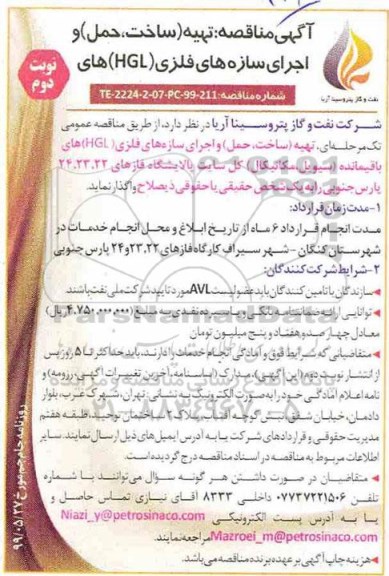 آگهی مناقصه: تهیه (ساخت، حمل) و
اجرای سازه های فلزی (HGL) های
نوبت دوم
شماره مناقصه: TE-2224-2-07-PC-99-211
نفت و گاز پتروسینا آریا
شرکت نفت و گاز پتروسینا آریا در نظر دارد، از طریق مناقصه عمومی
تک مرحله ای، تهیه (ساخت، حمل) و اجرای سازه های فلزی (HGL) های
باقیمانده (سیویل، مکانیکال) کل سایت پالایشگاه فازهای ۲۴،۲۳،۲۲
پارس جنوبی را به یک شخص حقیقی یا حقوقی ذیصلاح واگذار نماید.
۱-مدت زمان قرارداد:
مدت انجام قرارداد ۶ ماه از تاریخ ابلاغ و محل انجام خدمات در
شهرستان کنگان - شهر سیراف کارگاه فازهای ۲۳،۲۲ و ۲۴ پارس جنوبی
۲-شرایط شرکت کنندگان:
سازندگان یا تامین کنندگان باید عضو لیست AVL مورد تایید شرکت ملی نفت باشند
توانایی ارایه ضمانتنامه بانکی یا سپرده نقدی به مبلغ (۴.۷۵۰.۰۰۰.۰۰۰ ریال)
معادل چهارصد و هفتاد و پنج میلیون تومان
متقاضیانی که شرایط فوق و آمادگی انجام خدمات را دارند، باید حداکثر تا ۵ روز پس
از انتشار نوبت دوم (این آگهی)، مدارک (اساسنامه، آخرین تغییرات آگهی، رزومه) و
نامه اعلام آمادگی خود را به صورت الکترونیک به نشانی: تهران، شهرک غرب، بلوار
دادمان، خیابان شفق، نبش کوچه، ساختمان توحید، طبقه هفتم
مدیریت حقوقی و قراردادهای شرکت یا به آدرس ایمیل های ذیل ارسال نمایند. سایر
اطلاعات مربوط به مناقصه در اسناد مناقصه درج گردیده است.
متقاضیان در صورت داشتن هر گونه سؤال می توانند با شماره
تلفن ۰۷۷۳۷۲۲۱۵۰۶ داخلی ۸۳۳۳ آقای نیازی تماس حاصل و
یا به آدرس پست الکترونیکی Niazi_y@petrosinaco.com
Mazroei_m@petrosinaco.com مراجعه نمایند.
هزینه چاپ آگهی بر عهده برنده مناقصه می باشد.
روزنامه جام جم مورخ ۹۹/۰۵/۲۷
ParsNamadData